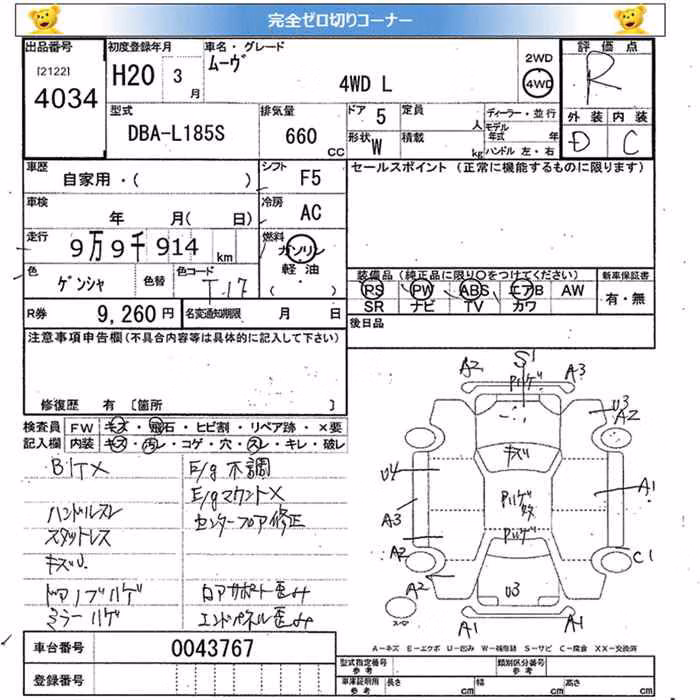 完全ゼロ切りコーナー
出品番号
[2122]
4034
初度登録年月
H20 3 月
車名・グレード
ムーヴ
4WD L
2WD
4WD
評価点
R
外装 内装
D C
型式
DBA-L185S
排気量
660 CC
ドア 5
形状 W
定員 人
積載 kg
ディーラー・並行
モデル年式 年
ハンドル 左・右
車歴
自家用・( )
シフト F5
セールスポイント (正常に機能するものに限ります)
車検
年 月( 日)
冷房 AC
走行
9万9千914 km
燃料
ガソリン
軽油
( ・ )
色
ゲンシャ
色替
色コード
T-17
装備品 (純正品に限り○をつけてください)
PS PW ABS エアB AW
SR ナビ TV カワ
新車保証書
有・無
R券 9,260 円
名変通知期限 月 日
後日品
注意事項申告欄(不具合内容等は具体的に記入して下さい)
修復歴 有 [箇所 ]
検査員記入欄
FW キズ・飛石・ヒビ割・リペア跡・×要
内装 キズ・汚レ・コゲ・穴・スレ・キレ・破レ
ハンドルスレ
スタットレス
キズU.
ドアノブハゲ
ミラーハゲ
E/g不調
E/gマウント×
センターフロア修正
ロアサポート歪み
エンドパネル歪み
A2 S1 A3
U3
A2
キズ
U4
A3
A1
A2
C1
A2
U3
A1 A1
A-キズ E-エクボ U-凹み W-補修跡 S-サビ C-腐食 XX-交換済
車台番号 0043767
登録番号
型式指定番号
類別区分番号
車庫証明用参考 長さ cm 幅 cm 高さ cm